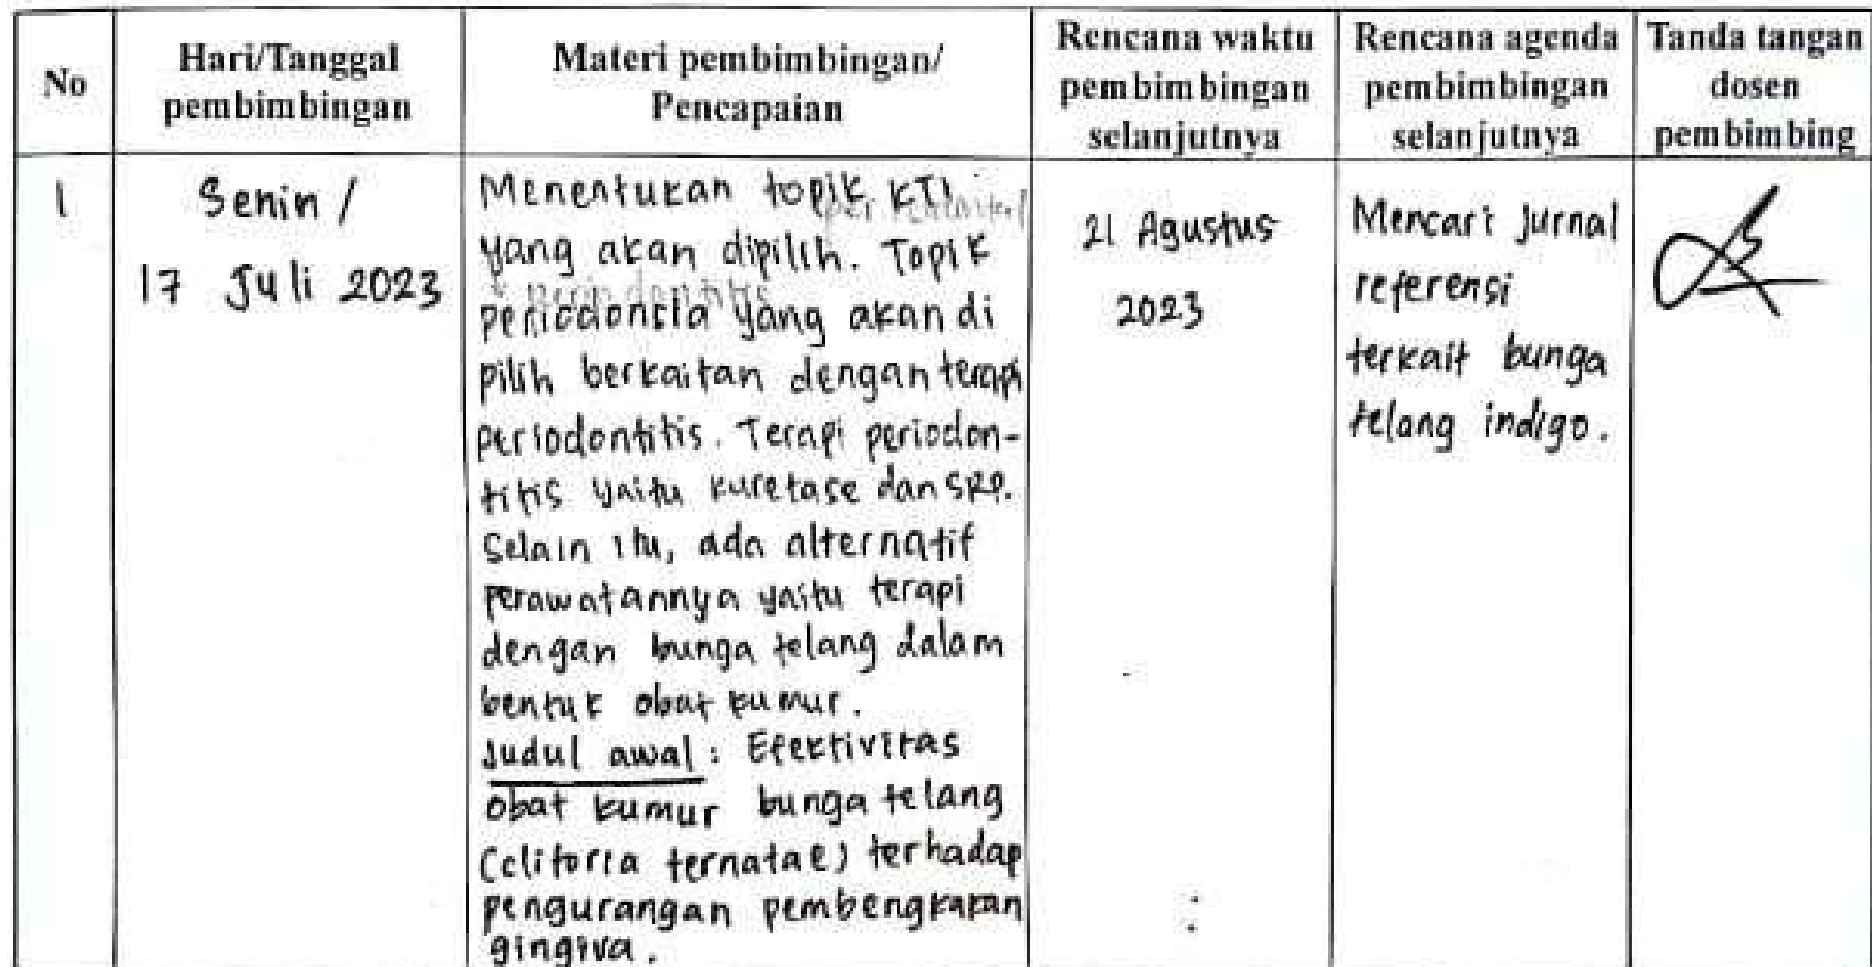 No
Hari/Tanggal
pembimbingan
Materi pembimbingan/
Pencapaian
Rencana waktu
pembimbingan
selanjutnya
Rencana agenda
pembimbingan
selanjutnya
Tanda tangan
dosen
pembimbing
1
Senin /
17 Juli 2023
Menentukan topik KTI
yang akan dipilih. Topik
periodonsia yang akan di
pilih berkaitan dengan terapi
periodontitis. Terapi periodon-
titis yaitu kuretase dan SRP.
Selain itu, ada alternatif
perawatannya yaitu terapi
dengan bunga telang dalam
bentuk obat kumur.
Judul awal : Efektivitas
obat kumur bunga telang
(clitoria ternatae) terhadap
pengurangan pembengkakan
gingiva.
21 Agustus
2023
Mencari Jurnal
referensi
terkait bunga
telang indigo.